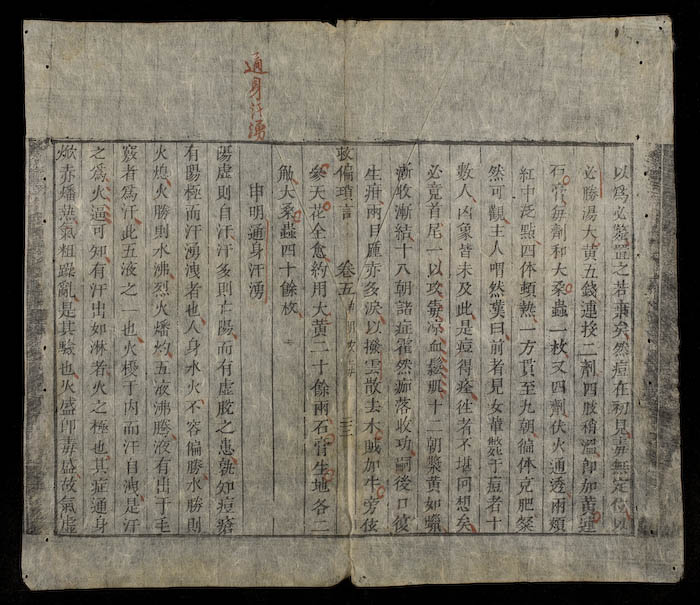 以爲必斃置之若棄矣然痘在初見毒無定位以
必勝湯大黃五錢連投二劑四肢稍溫卽加黃連
石膏每劑和大桑蟲一枚又四劑伏火通透兩頰
紅中泛點四体頻熱一方貫至九朝徧体克肥粲
然可觀主人喟然嘆曰前者見女輩斃于痘者十
數人凶象皆未及此是痘得痊徃者不堪回想矣
必竟首尾一以攻毒凉血鬆肌十二朝漿黃如蠟
漸收漸結十八朝諸症霍然痂落收功嗣後口復
生疳兩目腫赤多淚以撥雲散去木賊加牛旁
參天花全愈約用大黃二十餘兩石膏生地各二
觔大桑蟲四十餘枚
救偏瑣言 卷五
通身汗湧
申明通身汗湧
陽虛則自汗汗多則亡陽而有虛脫之患孰知痘瘡
有陽極而汗湧洩者也人身水火不容偏勝水勝則
火熄火勝則水沸烈火燔灼五液沸騰液有出于毛
竅者爲汗此五液之一也火極于內而汗自洩是汗
之爲火逼可知有汗出如淋者火之極也其症通身
焮赤燔熱氣粗躁亂是其驗也火盛卽毒盛故氣虛